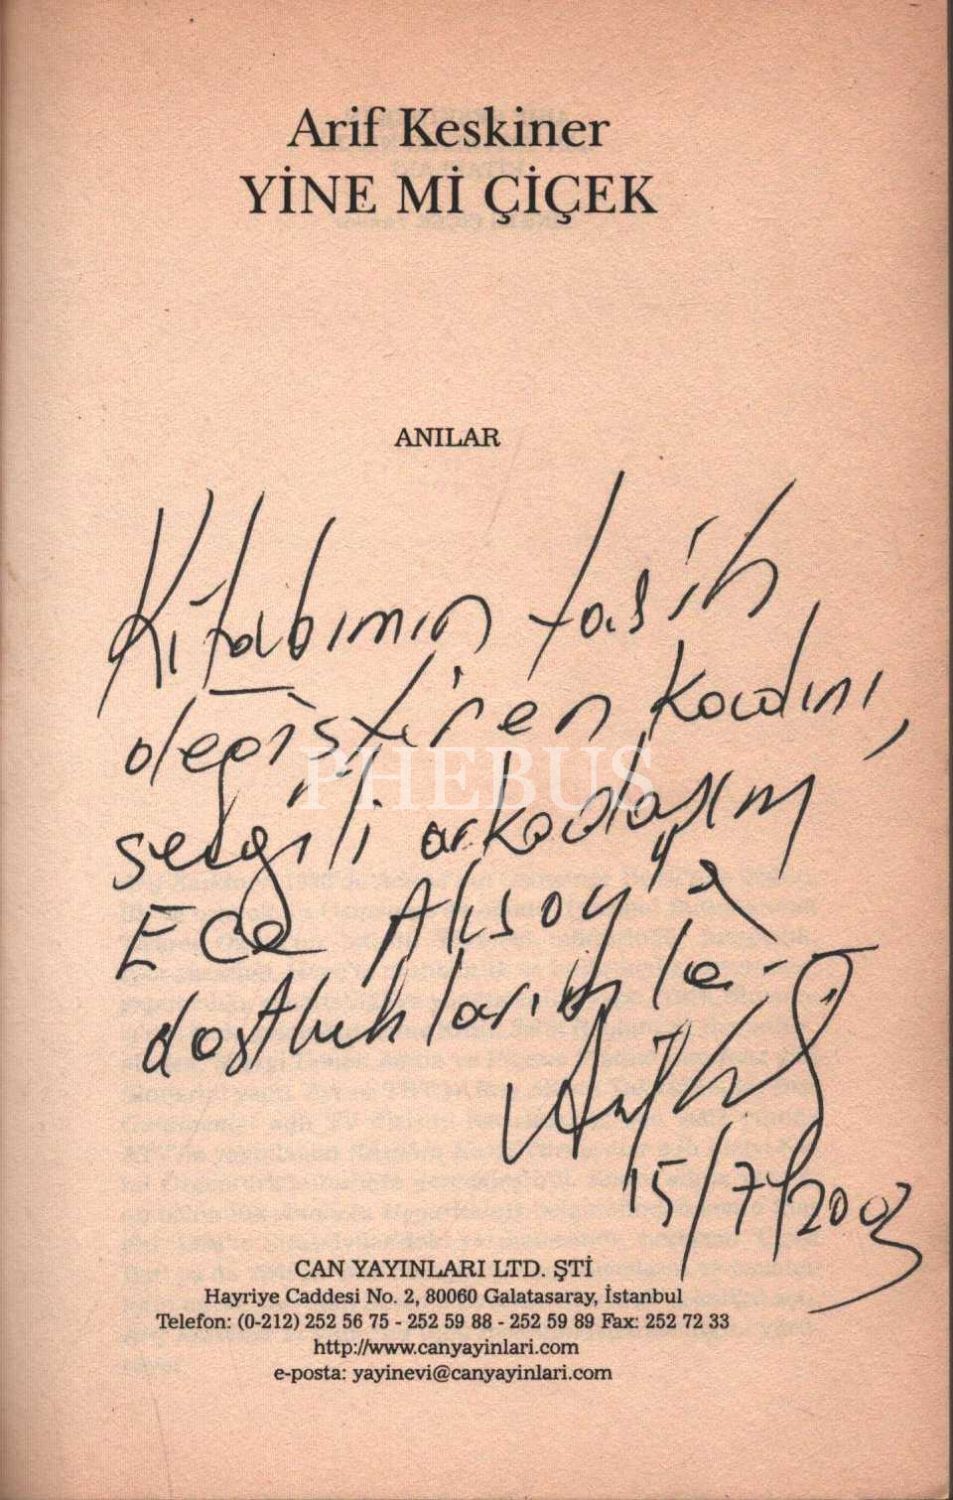 Arif Keskiner
YİNE Mİ ÇİÇEK
ANILAR
Kitabımın tasih
değiştiren kadını,
sevgili arkadaşım
Ece Aksoy'a
dostluklarımla
15/7/2003
PHEBUS
CAN YAYINLARI LTD. ŞTİ
Hayriye Caddesi No. 2, 80060 Galatasaray, İstanbul
Telefon: (0-212) 252 56 75 - 252 59 88 - 252 59 89 Fax: 252 72 33
http://www.canyayinlari.com
e-posta: yayinevi@canyayinlari.com